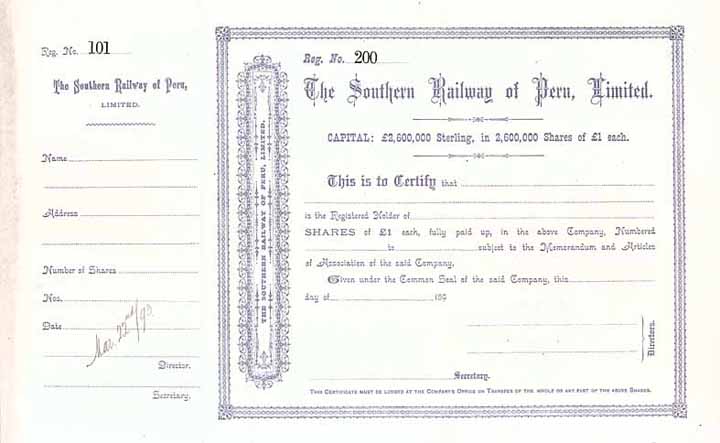 Reg. No. 101
The Southern Railway of Peru,
LIMITED.
Name
Address
Number of Shares
Nos.
Date
Mar. 22nd/90
Director.
Secretary.
THE SOUTHERN RAILWAY OF PERU, LIMITED.
Reg. No. 200
The Southern Railway of Peru, Limited.
CAPITAL: £2,600,000 Sterling, in 2,600,000 Shares of £1 each.
This is to Certify that
is the Registered Holder of
SHARES of £1 each, fully paid up, in the above Company, Numbered
to subject to the Memorandum and Articles
of Association of the said Company,
Given under the Common Seal of the said Company, this
day of 189
Directors.
Secretary.
THIS CERTIFICATE MUST BE LODGED AT THE COMPANY'S OFFICE ON TRANSFER OF THE WHOLE OR ANY PART OF THE ABOVE SHARES.